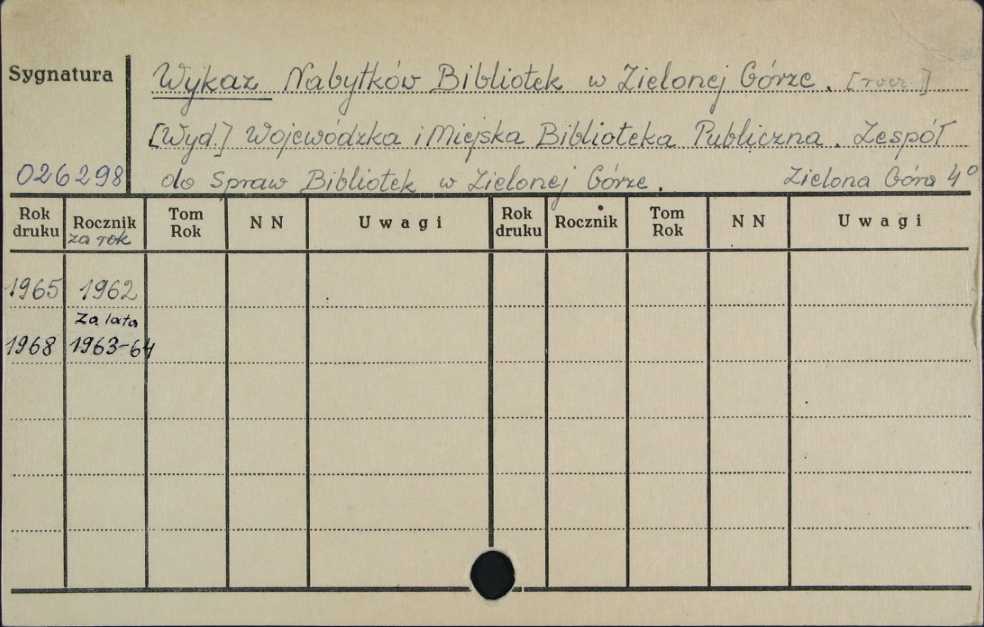 Sygnatura
Wykaz Nabytków Bibliotek w Zielonej Górze. [rocz.]
[Wyd.] Wojewódzka i Miejska Biblioteka Publiczna. Zespół
026298
do Spraw Bibliotek w Zielonej Górze.
Zielona Góra 4°
Rok druku Rocznik Tom Rok NN Uwagi Rok druku Rocznik Tom Rok NN Uwagi
za rok
1965 1962
za lata
1968 1963-64